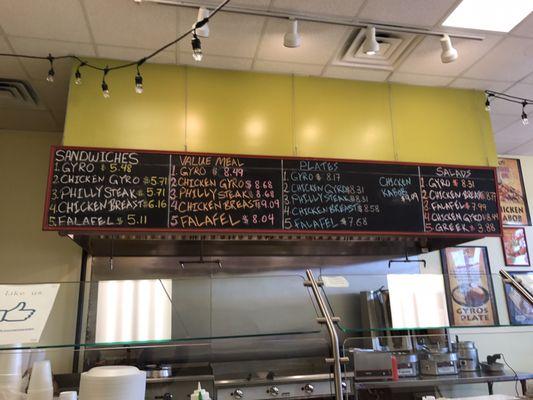 SANDWICHES
1. GYRO $ 5.48
2. CHICKEN GYRO $5.71
3. PHILLY STEAK $5.71
4. CHICKEN BREAST $6.16
5. FALAFEL $ 5.11
VALUE MEAL
1. GYRO $ 8.49
2. CHICKEN GYRO $8.68
3. PHILLY STEAK $ 8.68
4. CHICKEN BREAST $9.09
5. FALAFEL $ 8.04
PLATES
1. GYRO $8.17
2. CHICKEN GYRO $8.31
3. PHILLY STEAK $8.31
4. CHICKEN BREAST $8.58
5. FALAFEL $7.68
CHICKEN
KABOB
SALADS
1. GYRO $ 8.31
2. CHICKEN
3. FALAFEL $ 7.99
4. CHICKEN GYRO
5. GREEK $ 3.88
Like
CHICKEN
KABOB
GYROS
PLATE